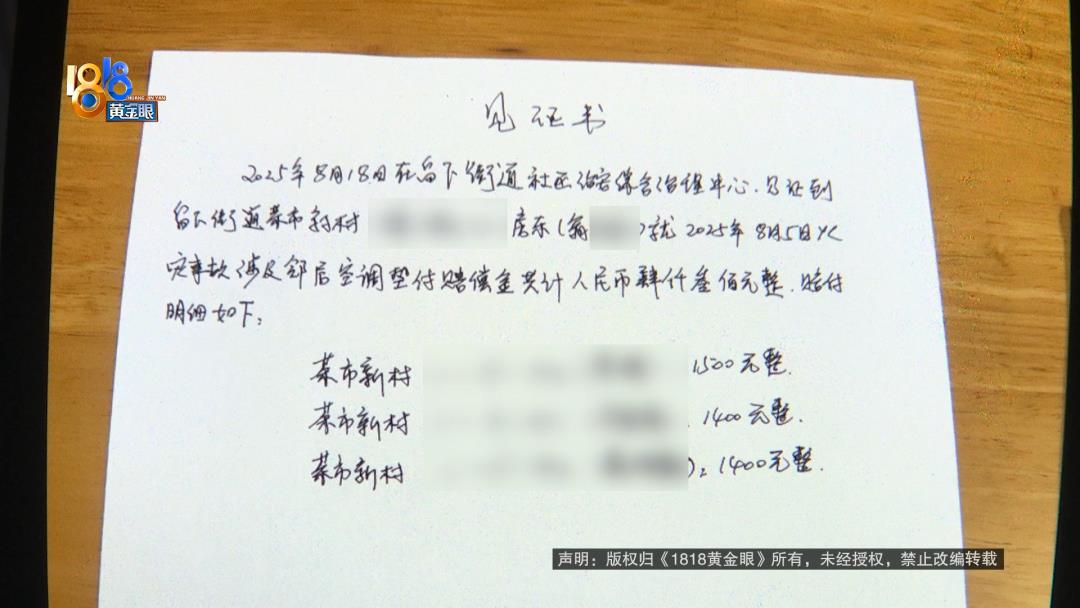 1818
HUANG JIN YAN
黄金眼
见证书
2025年8月18日在留下街道社区治安综合治理中心.见证到
留下街道菜市新村 房东(翁 )就2025年8月5日火
灾事故涉及邻居空调垫付赔偿金共计人民币肆仟叁佰元整.赔付
明细如下:
菜市新村 1500元整.
菜市新村 1400元整.
菜市新村 ):1400元整.
声明：版权归《1818黄金眼》所有，未经授权，禁止改编转载